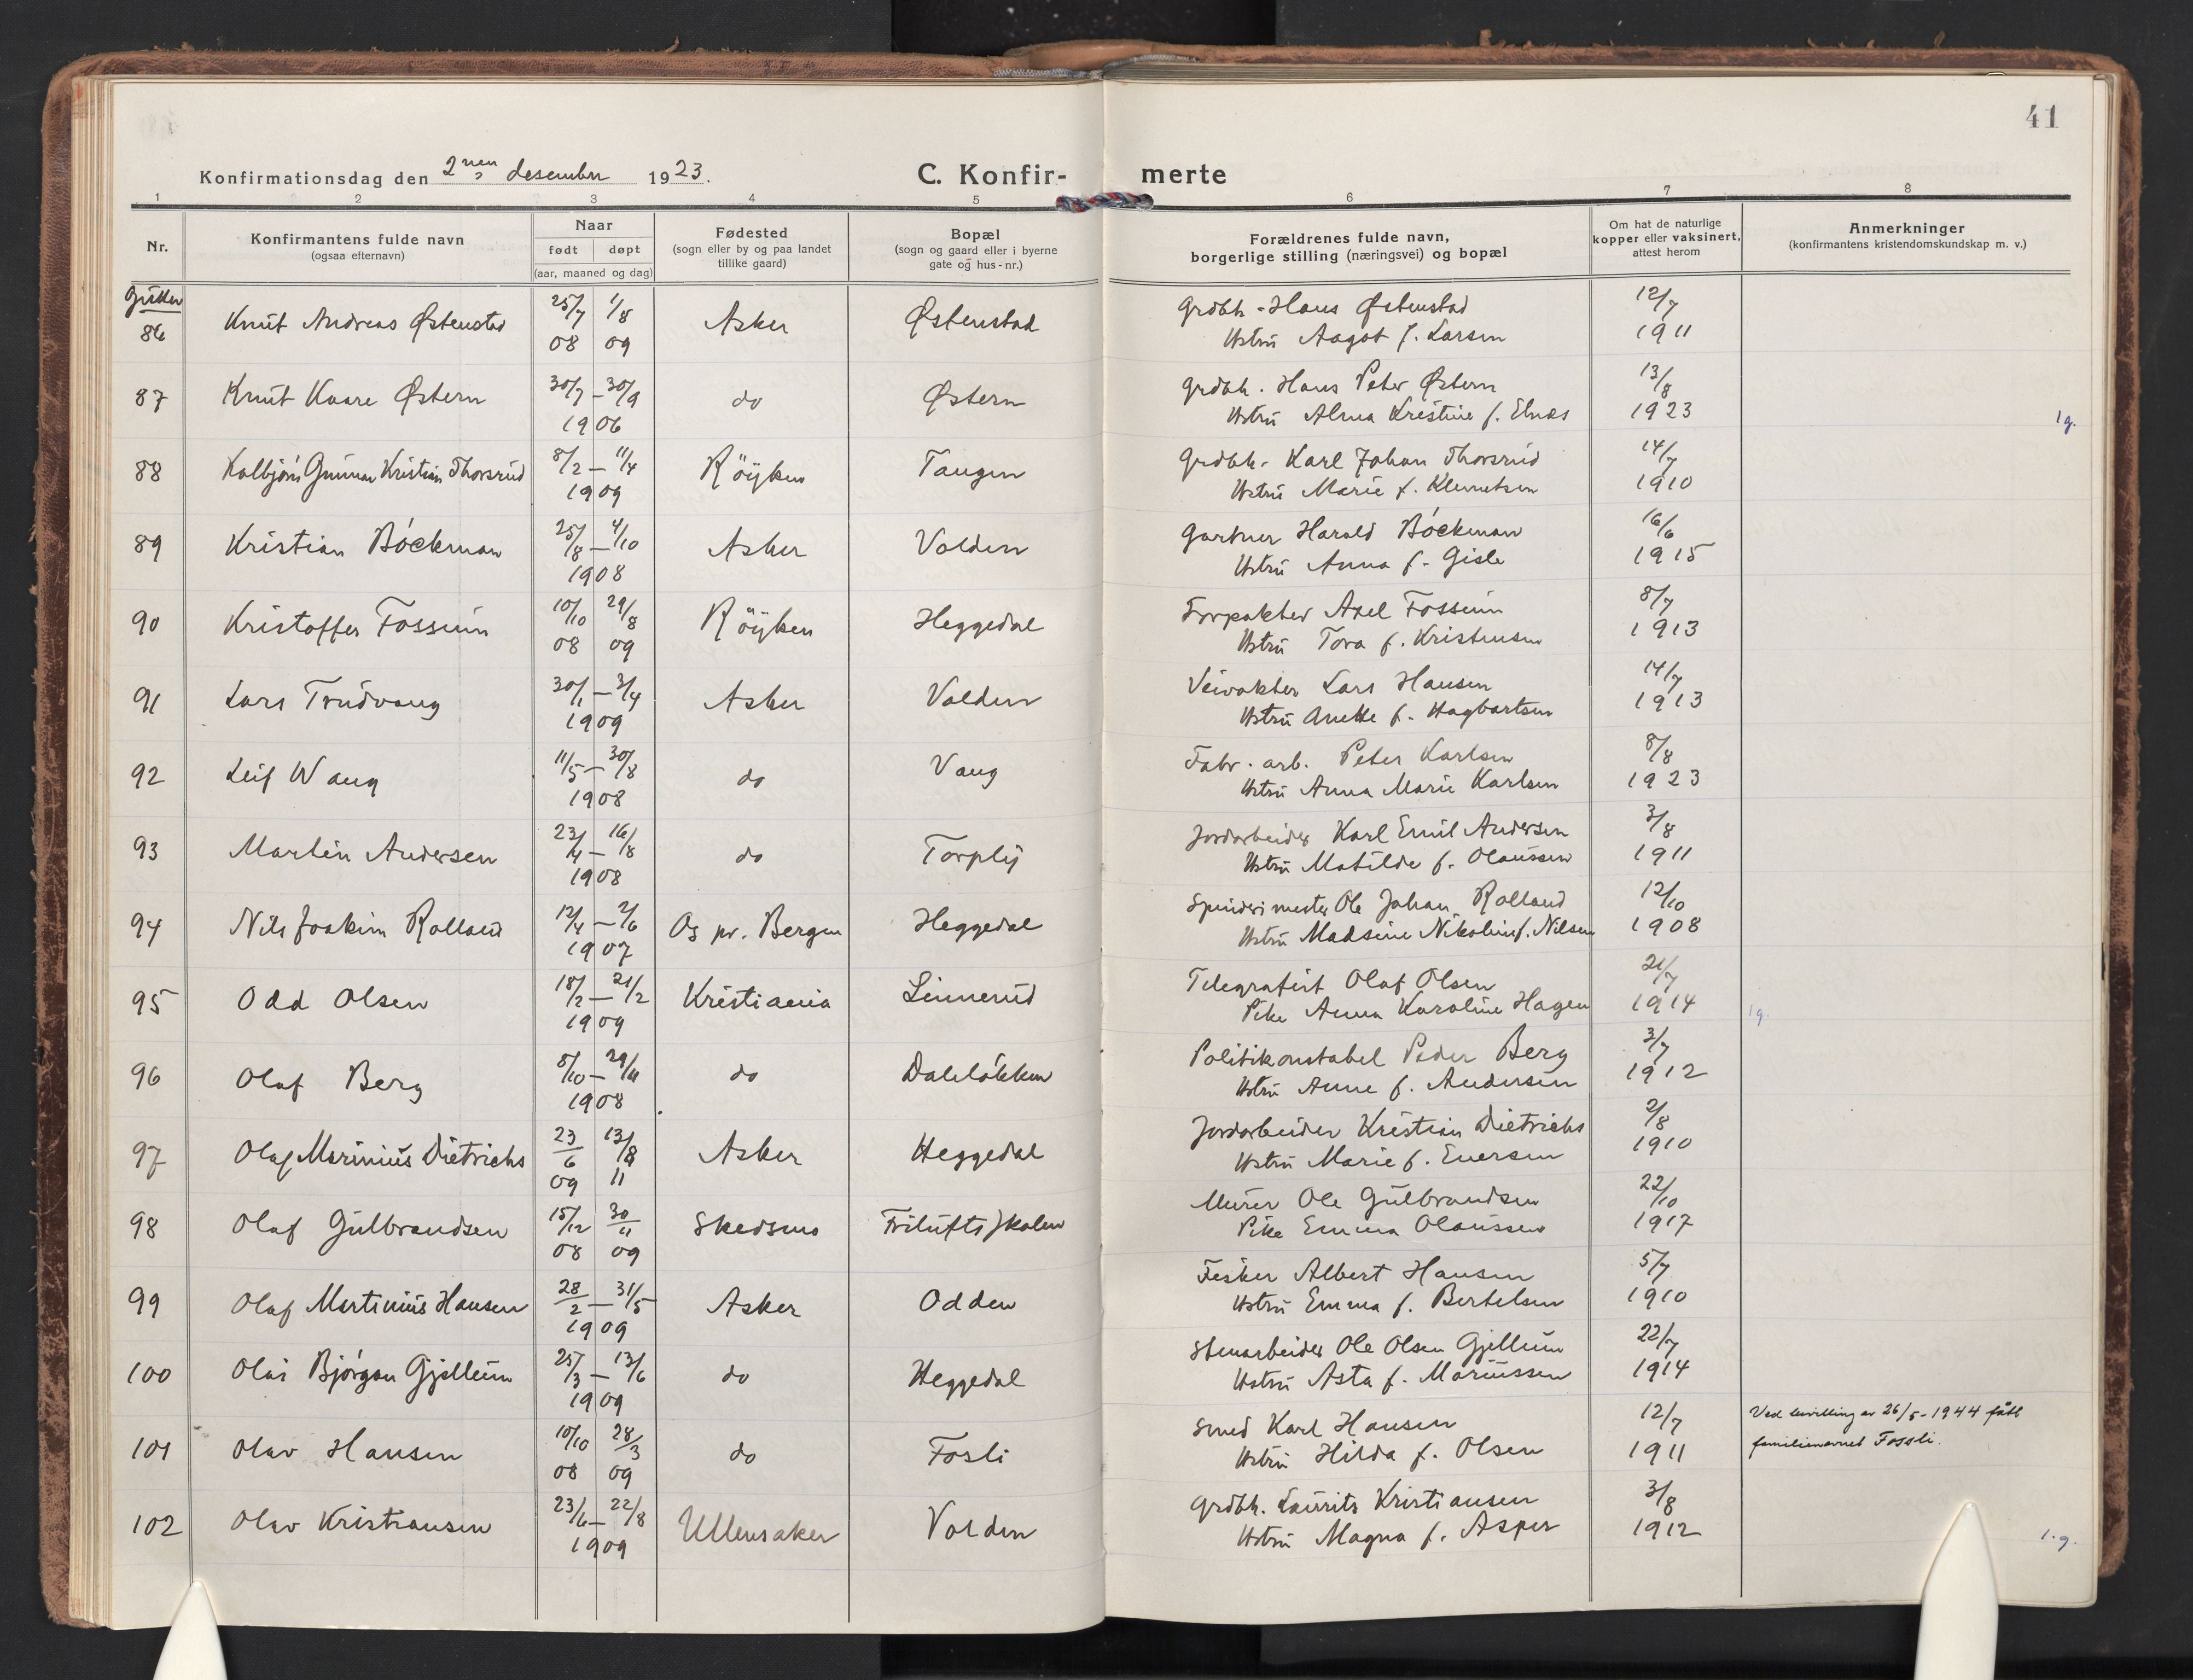 41
Konfirmationsdag den 2nen desember 1923.
C. Konfir- merte
1 2 3 4 5 6 7 8
Nr.
Konfirmantens fulde navn
(ogsaa efternavn)
Naar
født døpt
(aar, maaned og dag)
Fødested
(sogn eller by og paa landet
tillike gaard)
Bopæl
(sogn og gaard eller i byerne
gate og hus-nr.)
Forældrenes fulde navn,
borgerlige stilling (næringsvei) og bopæl
Om hat de naturlige
kopper eller vaksinert,
attest herom
Anmerkninger
(konfirmantens kristendomskundskap m. v.)
Gutter
86 Knut Andreas Østenstad 25/7 08 1/8 09 Asker Østenstad Grdbh. Hans Østenstad 12/7
Hstru Aagot f. Larsen 1911
87 Knut Kaare Østern 30/7 – 30/9 1906 do Østern Grdbh. Hans Peter Østern 13/8
Hstru Alma Kristine f. Elnæs 1923 1 g.
88 Kolbjörn Gunnar Kristian Thorsrud 8/2 – 11/4 1909 Röyken Tangen Grdbh. Karl Johan Thorsrud 14/7
Hstru Marie f. Klemetsen 1910
89 Kristian Böckman 25/8 – 4/10 1908 Asker Volden Gartner Harald Böckman 16/6
Hstru Anna f. Gisle 1915
90 Kristoffer Fossum 10/10 08 29/8 09 Röyken Heggedal Forpakter Axel Fossum 8/7
Hstru Tora f. Kristensen 1913
91 Lars Trudvang 30/1 – 3/4 1909 Asker Volden Veivokter Lars Hansen 14/7
Hstru Anette f. Hagbartsen 1913
92 Leif Wang 11/5 – 30/8 1908 do Vang Fabr. arb. Peter Karlsen 8/8
Hstru Anna Marie Karlsen 1923
93 Martin Andersen 23/4 – 16/8 1908 do Torply Jordarbeider Karl Emil Andersen 3/8
Hstru Matilde f. Olaussen 1911
94 Nils Joakim Rolland 12/4 – 2/6 1907 Os pr. Bergen Heggedal Spinderimester Ole Johan Rolland 12/10
Hstru Madsine Nikoline f. Nilsen 1908
95 Odd Olsen 18/2 – 21/2 1909 Kristiania Linnerud Telegrafist Olaf Olsen 21/7
Pike Anna Karoline Hagen 1914 1g.
96 Olaf Berg 8/10 – 29/11 1908 do Dalelökken Politikonstabel Peder Berg 3/7
Hstru Anne f. Andersen 1912
97 Olaf Marinius Dietrichs 23/6 09 13/8 11 Asker Heggedal Jordarbeider Kristian Dietrichs 2/8
Hstru Marie f. Eversen 1910
98 Olaf Gulbrandsen 15/12 08 30/11 09 Skedsmo Friluftsskolen Murer Ole Gulbrandsen 22/10
Pike Emma Olaussen 1917
99 Olaf Martinius Hansen 28/2 – 31/5 1909 Asker Odden Fisker Albert Hansen 5/7
Hstru Emma f. Bertelsen 1910
100 Olai Bjórgan Gjellum 25/3 – 13/6 1909 do Heggedal Stenarbeider Ole Olsen Gjellum 22/7
Hstru Asta f. Mariussen 1914
101 Olav Hansen 10/10 08 28/3 09 do Fosli Smed Karl Hansen 12/7 Ved bevilling av 26/5-1944 fått
Hstru Hilda f. Olsen 1911 familienavnet Fossli.
102 Olav Kristiansen 23/6 – 22/8 1909 Ullensaker Volden Grdbh. Laurits Kristiansen 3/8
Hstru Magna f. Asper 1912 1. g.